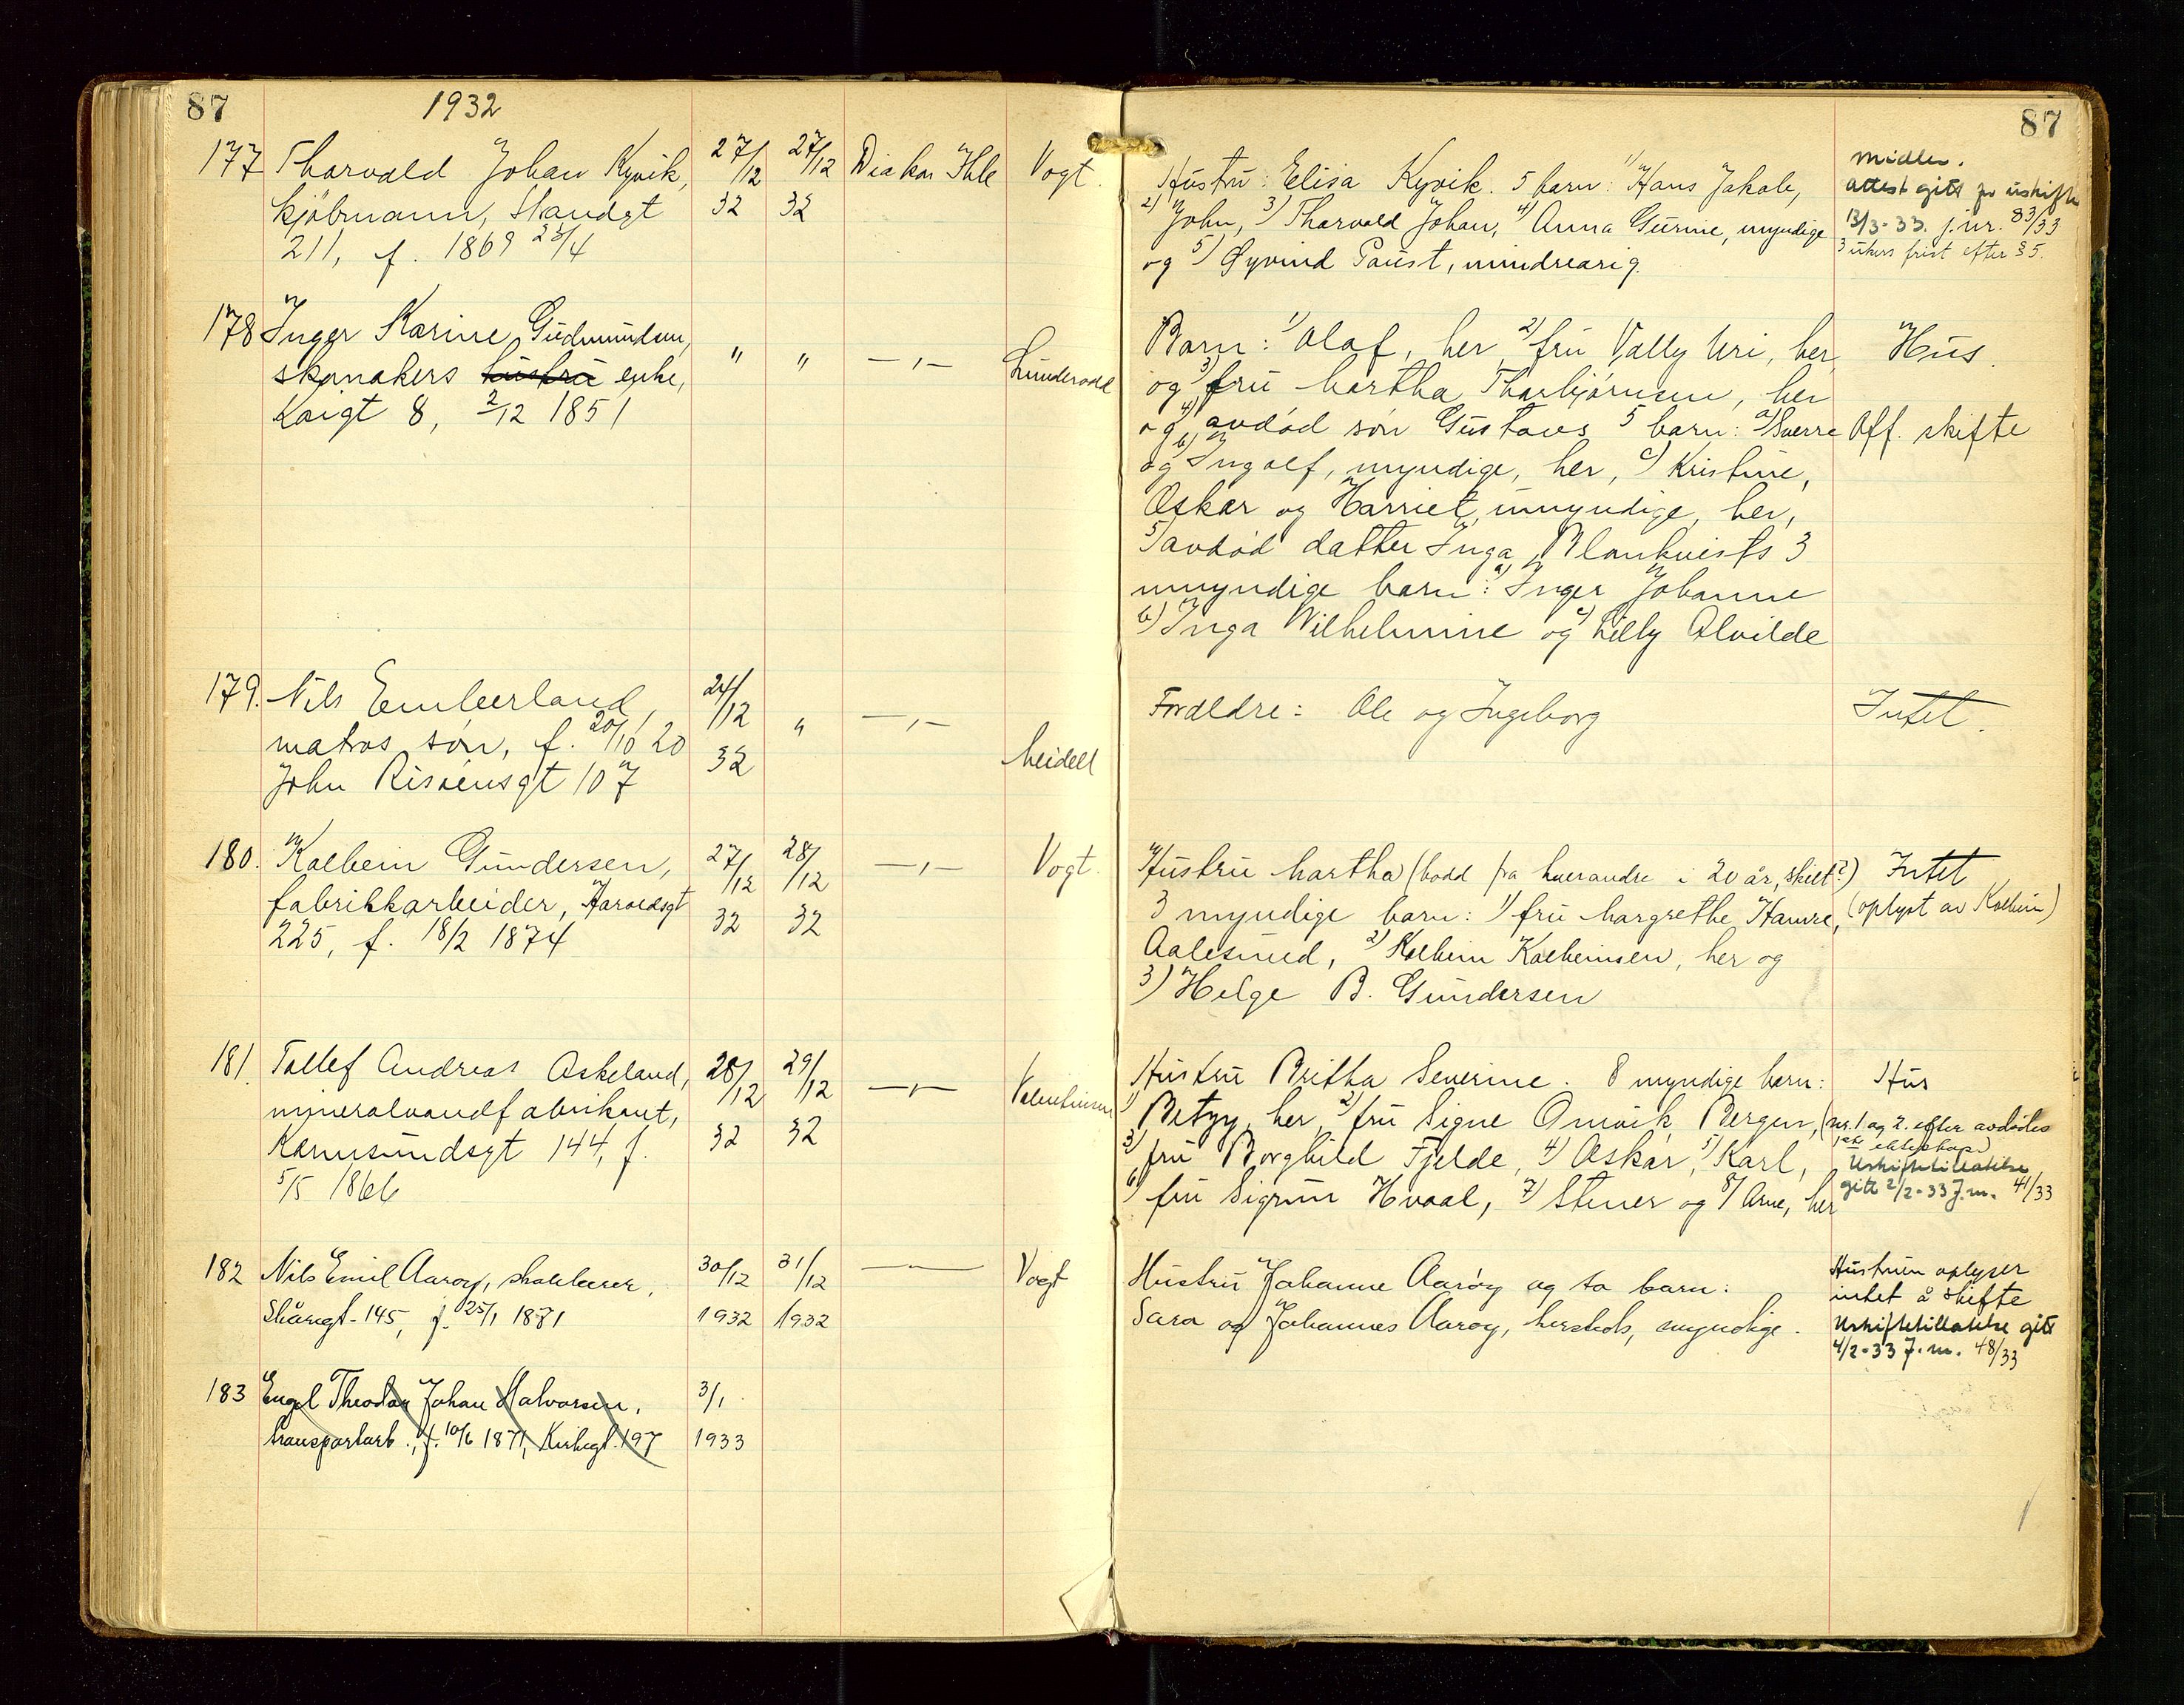 87
1932
177 Thorvald Johan Kyvik, 27/12 32 27/12 32 Diakon Ihle Vogt.
kjøbmann, Strandgt
211, f. 1869 23/4
178 Inger Karine Gudmundsen, " " —„— Lundervold
skomakers hustru enke,
Kaigt 8, 2/12 1851
179. Nils Emberland, 24/12 32 " —„— Meidell
matros søn, f. 20/10 20
John Risøensgt 107
180. Kolbein Gundersen, 27/12 32 28/12 32 —„— Vogt.
fabrikkarbeider, Haraldsgt
225, f. 18/2 1874
181. Tollef Andreas Askeland, 28/12 32 29/12 32 —„— Valentinsen
mineralvandfabrikant,
Karmsundsgt 144, f.
5/5 1866
182 Nils Emil Aarøy, 30/12 1932 31/12 1932 — Vogt
Skåregt. 145, f. 25/1 1871
183 Engel Theodor Johan Halvorsen, 3/1 1933
transportarb., f. 10/6 1871, Kirkegt. 197
87
Hustru: Elisa Kyvik. 5 barn: 1) Hans Jakob,
2) John, 3) Thorvald Johan, 4) Anna Gurine, myndige
og 5) Øyvind Paust, mindreårig.
Midler.
Attest gitt for uskifte
13/3-33. j.nr. 83/33
3 ukers frist efter § 5.
Barn: 1) Olaf, her, 2) fru Vally Uri, her,
og 3) fru Martha Thorbjørnsen, her
og 4) avdød søn Gustavs 5 barn: a) Sverre
og b) Ingolf, myndige, her, c) Kristine,
Oskar og Harriet, umyndige, her,
5) avdød datter Inga Blankvists 3
umyndige barn: a) Inger Johanne
b) Inga Wilhelmine og c) Lilly Alvilde
Hus.
Off. skifte
Foreldre: Ole og Ingeborg
Intet.
Hustru Martha (bodd fra hverandre i 20 år, skilt?)
3 myndige barn: 1) fru Margrethe Hamre,
Aalesund, 2) Kolbein Kolbeinsen, her og
3) Helge B. Gundersen
Intet
(oplyst av Kolbein)
Hustru Britha Severine. 8 myndige barn:
1) Betzy, her, 2) fru Signe Omvik, Bergen,
3) fru Borghild Fjelde, 4) Oskar, 5) Karl,
6) fru Sigrun Hvaal, 7) Stener og 8) Arne, her
Hus
(nr. 1 og 2. efter avdødes
1ste ekteskap)
Uskiftetillatelse
gitt 2/2-33 J.nr. 41/33
Hustru Johanne Aarøy og to barn:
Sara og Johannes Aarøy, hersteds, myndige.
Hustruen oplyser
intet å skifte
Uskiftetillatelse gitt
4/2-33 J.nr. 48/33